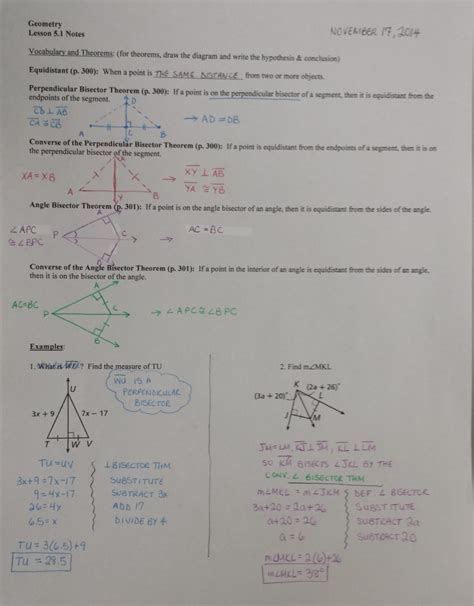 Geometry
Lesson 5.1 Notes
NOVEMBER 17, 2014
Vocabulary and Theorems: (for theorems, draw the diagram and write the hypothesis & conclusion)
Equidistant (p. 300): When a point is THE SAME DISTANCE from two or more objects.
Perpendicular Bisector Theorem (p. 300): If a point is on the perpendicular bisector of a segment, then it is equidistant from the
endpoints of the segment.
D
CD ⊥ AB
CA ≅ CB
→ AD = DB
A C B
Converse of the Perpendicular Bisector Theorem (p. 300): If a point is equidistant from the endpoints of a segment, then it is on
the perpendicular bisector of the segment.
XA = XB
→ XY ⊥ AB
YA ≅ YB
A Y B
Angle Bisector Theorem (p. 301): If a point is on the angle bisector of an angle, then it is equidistant from the sides of the angle.
A
∠APC
≅ ∠BPC
P C
→ AC = BC
B
Converse of the Angle Bisector Theorem (p. 301): If a point in the interior of an angle is equidistant from the sides of an angle,
then it is on the bisector of the angle.
A
AC=BC
P C
→ ∠APC ≅ ∠BPC
B
Examples:
1. What is ? Find the measure of TU
WU IS A
PERPENDICULAR
BISECTOR
U
3x + 9 7x − 17
T W V
TU = UV ⊥ BISECTOR THM
3x+9 = 7x-17 SUBSTITUTE
9 = 4x-17 SUBTRACT 3x
26 = 4x ADD 17
6.5 = x DIVIDE BY 4
TU = 3(6.5)+9
TU = 28.5
2. Find m∠MKL
K (2a + 26)°
(3a + 20)° L
J M
JM=LM, KJ ⊥ JM, KL ⊥ LM
SO KM BISECTS ∠JKL BY THE
CONV. ∠ BISECTOR THM
m∠MKL = m∠JKM DEF. ∠ BISECTOR
3a+20 = 2a+26 SUBSTITUTE
a+20 = 26 SUBTRACT 2a
a = 6 SUBTRACT 20
m∠MKL = 2(6)+26
m∠MKL = 38°